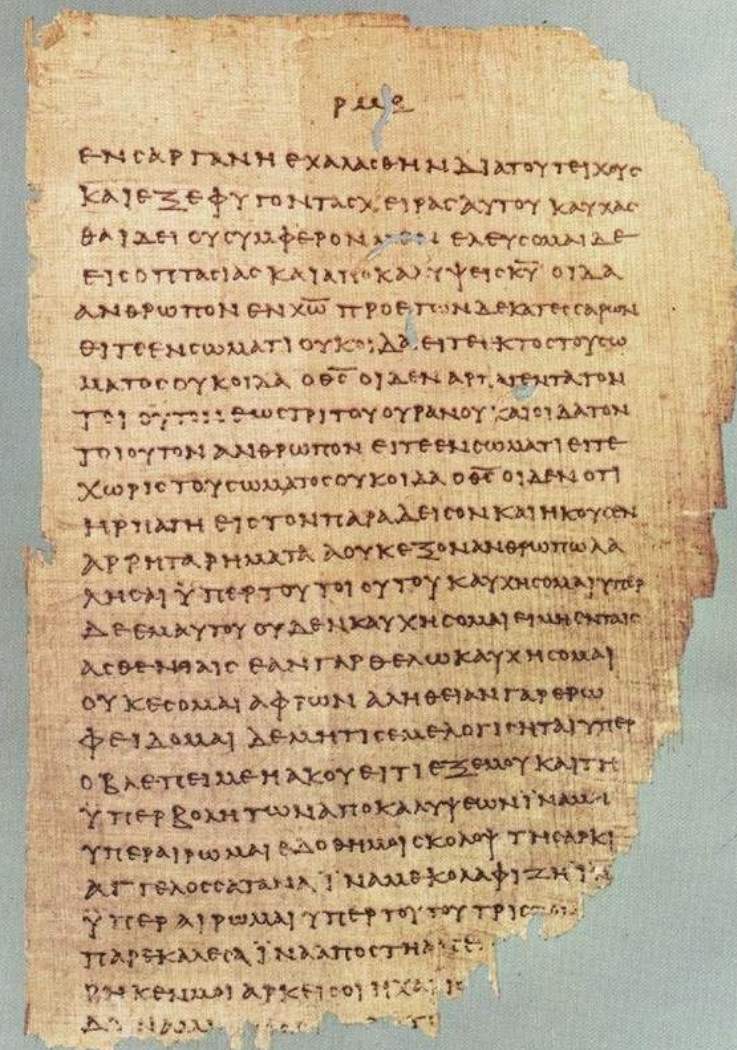 ρμε
ΕΝϹΑΡΓΑΝΗ ΕΧΑΛΑϹΘΗΝ ΔΙΑΤΟΥΤΕΙΧΟΥϹ
ΚΑΙΕΞΕΦΥΓΟΝΤΑϹΧΕΙΡΑϹΑΥΤΟΥ ΚΑΥΧΑϹ
ΘΑΙΔΕΙ ΟΥϹΥΜΦΕΡΟΝ ΜΕΝ ΕΛΕΥϹΟΜΑΙΔΕ
ΕΙϹΟΠΤΑϹΙΑϹ ΚΑΙΑΠΟΚΑΛΥΨΕΙϹΚ̅Υ̅ ΟΙΔΑ
ΑΝΘΡΩΠΟΝ ΕΝΧ̅Ω̅ ΠΡΟΕΤΩΝΔΕΚΑΤΕϹϹΑΡΩΝ
ΕΙΤΕΕΝϹΩΜΑΤΙ ΟΥΚΟΙΔΑ ΕΙΤΕΕΚΤΟϹΤΟΥϹΩ
ΜΑΤΟϹΟΥΚΟΙΔΑ ΟΘ̅Ϲ̅ ΟΙΔΕΝ ΑΡΠΑΓΕΝΤΑΤΟΝ
ΤΟΙΟΥΤΟΝ ΕΩϹΤΡΙΤΟΥΟΥΡΑΝΟΥ ΚΑΙΟΙΔΑΤΟΝ
ΤΟΙΟΥΤΟΝ ΑΝΘΡΩΠΟΝ ΕΙΤΕΕΝϹΩΜΑΤΙ ΕΙΤΕ
ΧΩΡΙϹΤΟΥϹΩΜΑΤΟϹΟΥΚΟΙΔΑ ΟΘ̅Ϲ̅ ΟΙΔΕΝ ΟΤΙ
ΗΡΠΑΓΗ ΕΙϹΤΟΝΠΑΡΑΔΕΙϹΟΝ ΚΑΙΗΚΟΥϹΕΝ
ΑΡΡΗΤΑ ΡΗΜΑΤΑ ΑΟΥΚΕΞΟΝΑΝΘΡΩΠΩΛΑ
ΛΗϹΑΙ ΫΠΕΡΤΟΥΤΟΙΟΥΤΟΥ ΚΑΥΧΗϹΟΜΑΙΥΠΕΡ
ΔΕΕΜΑΥΤΟΥ ΟΥΔΕΝΚΑΥΧΗϹΟΜΑΙΕΙΜΗΕΝΤΑΙϹ
ΑϹΘΕΝΕΙΑΙϹ ΕΑΝΓΑΡΘΕΛΩΚΑΥΧΗϹΟΜΑΙ
ΟΥΚΕϹΟΜΑΙ ΑΦΡΩΝ ΑΛΗΘΕΙΑΝΓΑΡΕΡΩ
ΦΕΙΔΟΜΑΙ ΔΕΜΗΤΙϹΕΜΕΛΟΓΙϹΗΤΑΙΥΠΕΡ
ΟΒΛΕΠΕΙΜΕΗΑΚΟΥΕΙΤΙΕΞΕΜΟΥΚΑΙΤΗ
ΫΠΕΡΒΟΛΗΤΩΝΑΠΟΚΑΛΥΨΕΩΝΪΝΑΜΗ
ΥΠΕΡΑΙΡΩΜΑΙ ΕΔΟΘΗΜΟΙϹΚΟΛΟΨ ΤΗϹΑΡΚΙ
ΑΓΓΕΛΟϹϹΑΤΑΝΑ ΪΝΑΜΕΚΟΛΑΦΙΖΗΪ
ΫΠΕΡΑΙΡΩΜΑΙ ΥΠΕΡΤΟΥΤΟΥ ΤΡΙϹ
ΠΑΡΕΚΑΛΕϹΑ ΪΝΑΑΠΟϹΤΗ
ΡΗΚΕΝΜΟΙ ΑΡΚΕΙϹΟΙ ΗΧΑΡΙϹ